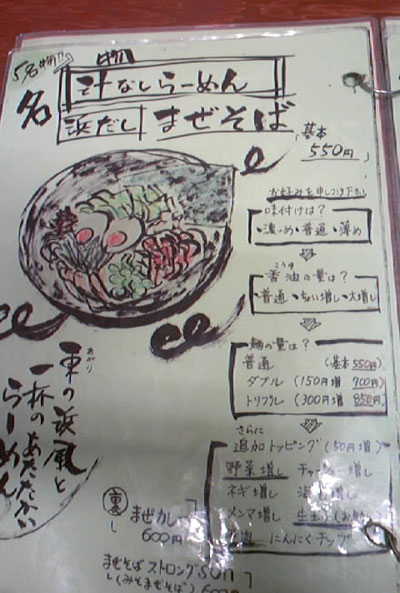 名物
汁なしらーめん
浜だし まぜそば
基本
550円
お好みを申しつけ下さい
味付けは？
・濃いめ・普通・薄め
こうゆ
香油の量は？
・普通・ちょい増し・大増し
麺の量は？
普通 (基本 550円)
ダブル (150円増 700円)
トリプル (300円増 850円)
さらに
追加トッピング (50円増)
野菜増し チャーシュー増し
ネギ増し 海苔増し
メンマ増し 生玉子
にんにくチップ
東の浜風と
一杯のあたたかい
らーめん
裏 まぜカレー
600円
まぜそばストロング
(みそまぜそば) 600